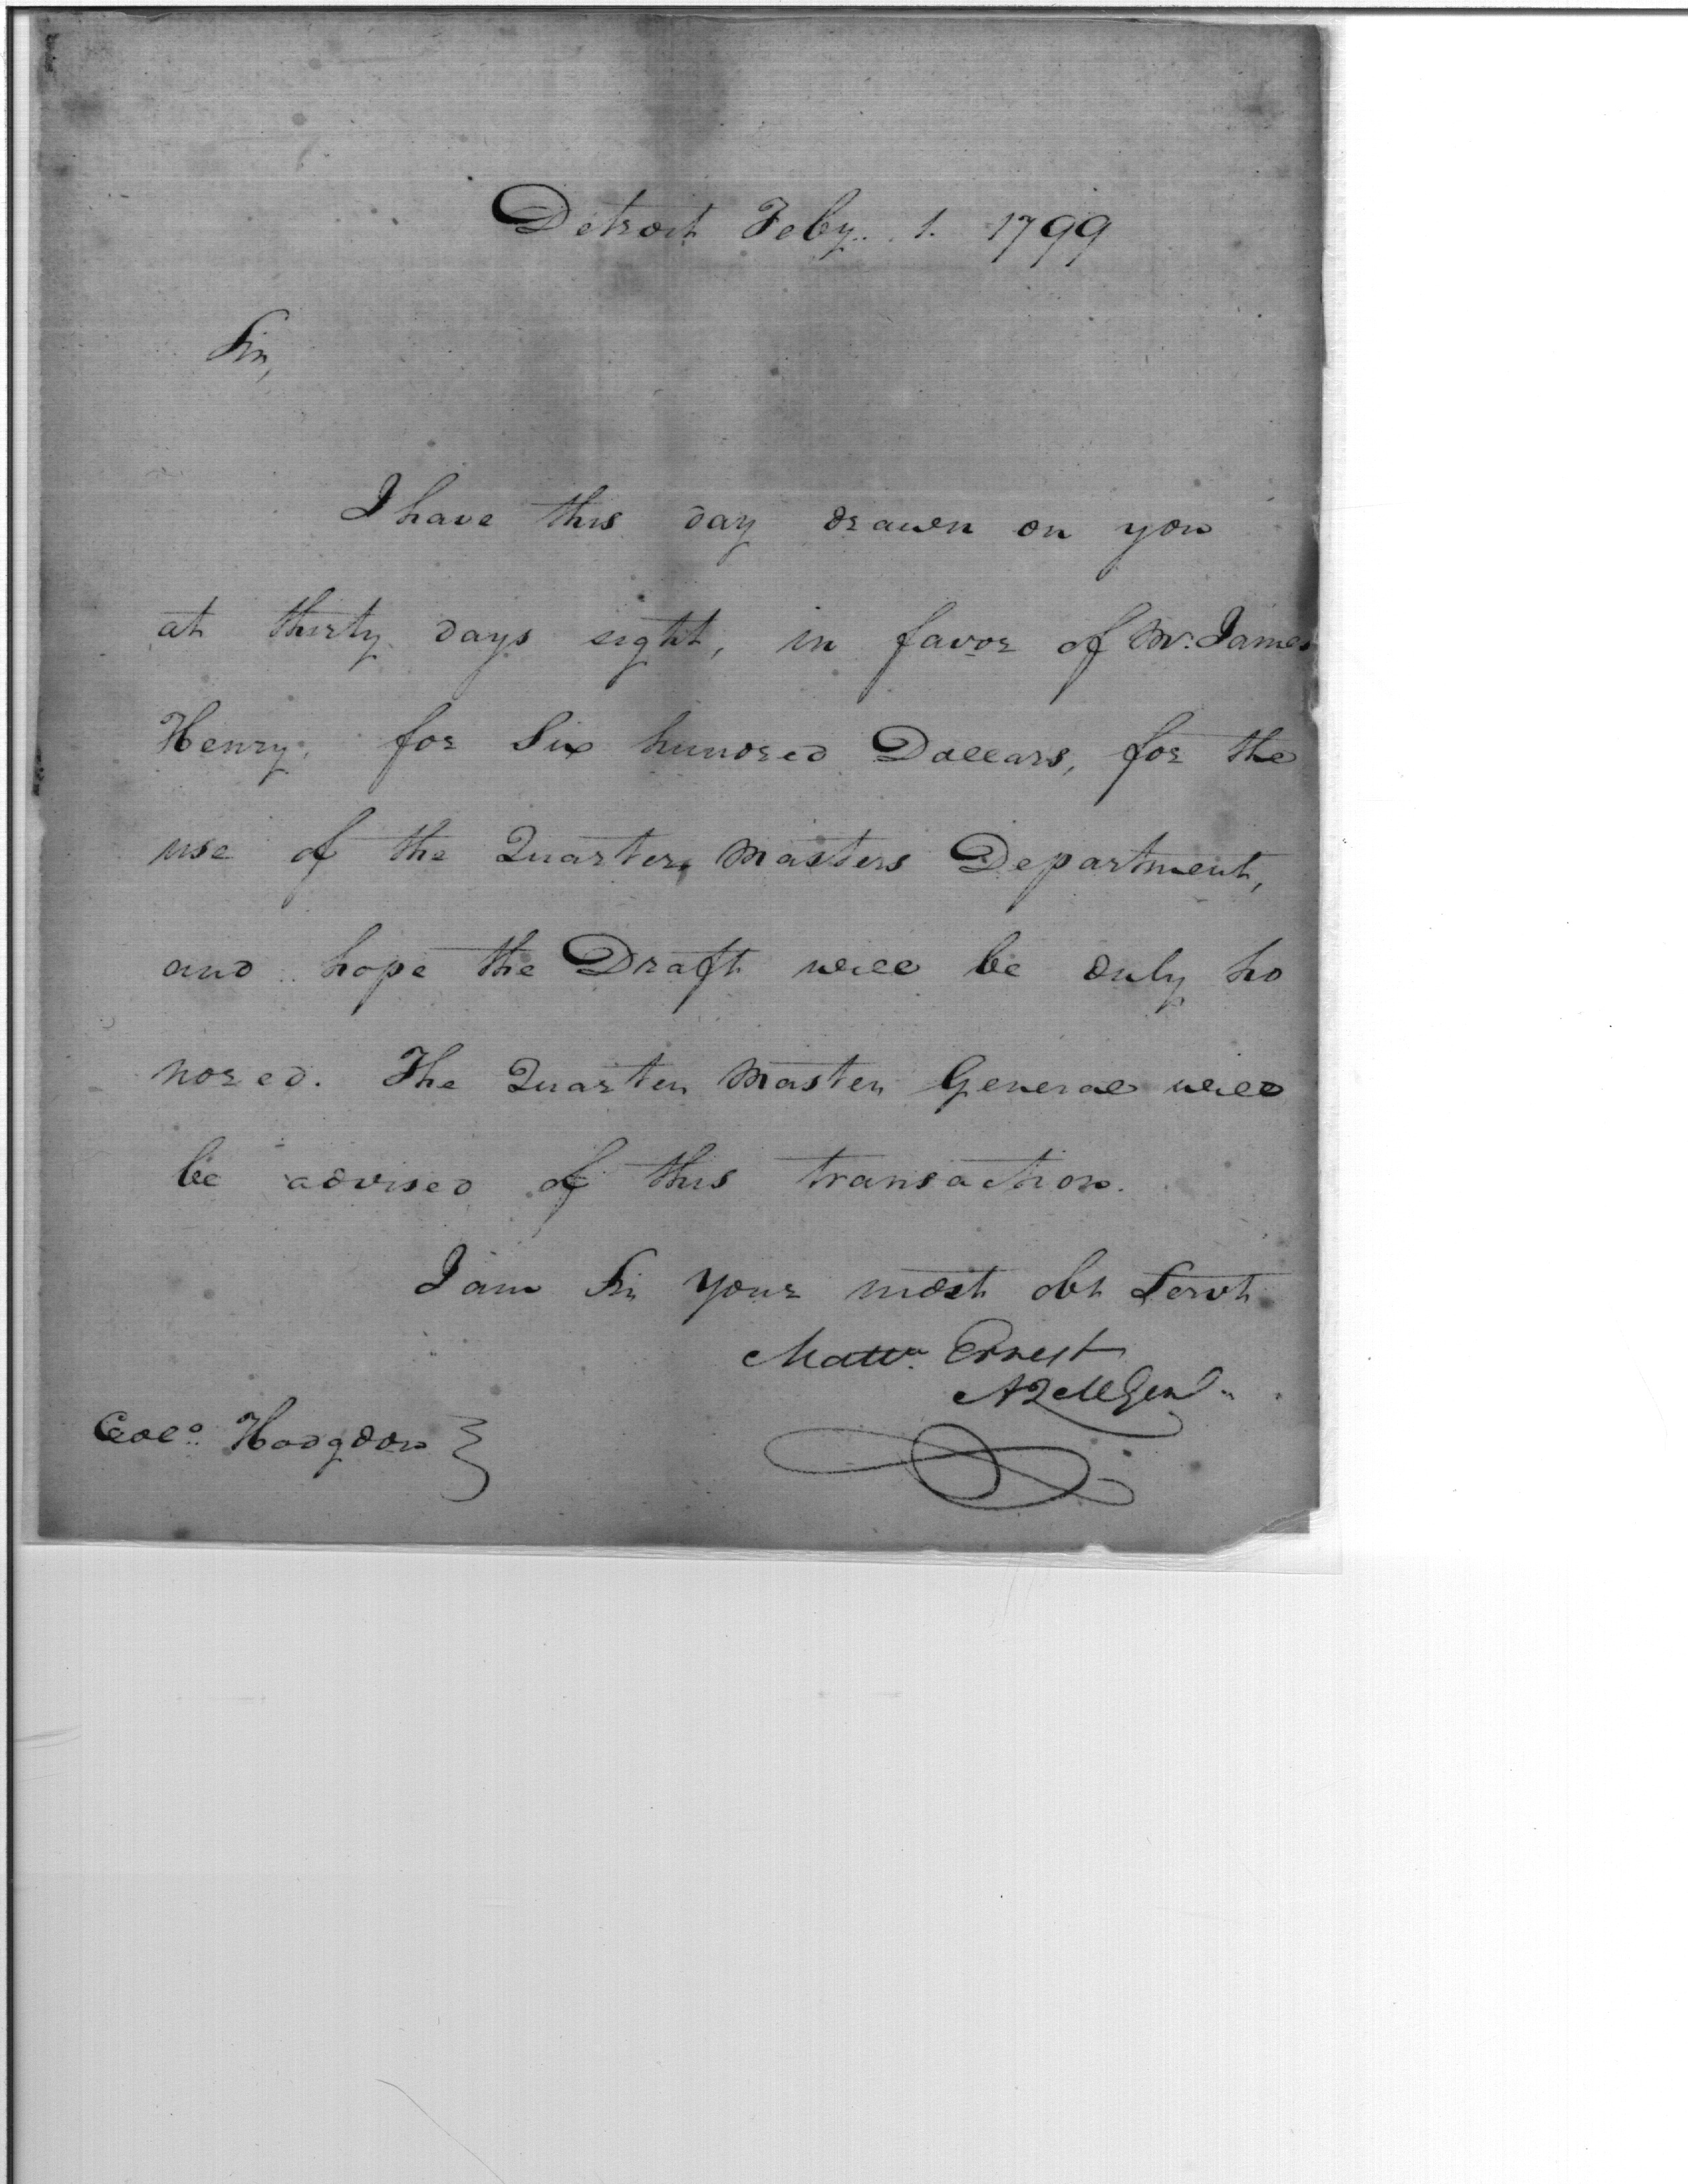 Detroit Feby. 1. 1799
Sir,
I have this day drawn on you
at thirty days sight, in favor of Mr. James
Henry, for Six hundred Dollars, for the
use of the Quarter Masters Department,
and hope the Draft will be duly ho
nored. The Quarter Master General will
be advised of this transaction.
I am Sir Your most obt Servt
Mattw. Ernest
AQMGenl.
Colo. Hodgdon